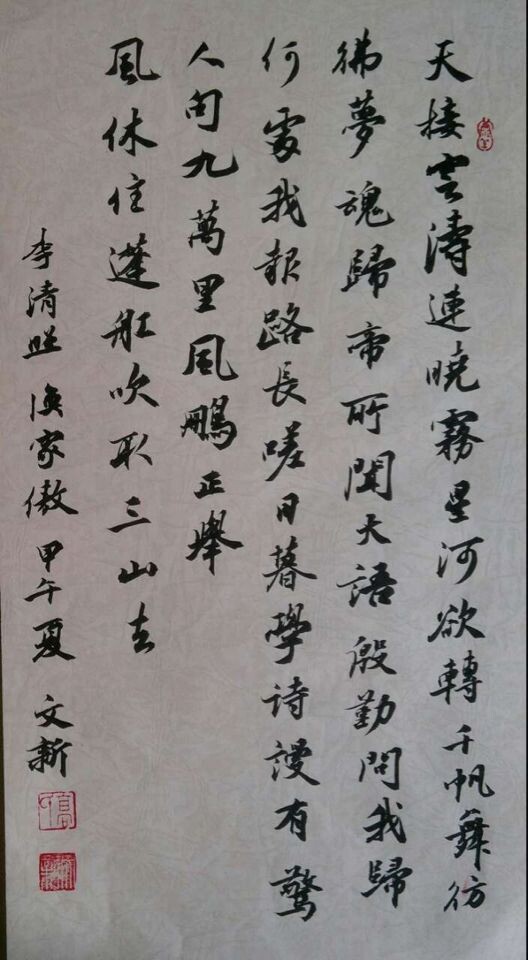 天接雲濤連曉霧星河欲轉千帆舞彷
彿夢魂歸帝所聞天語殷勤問我歸
何處我報路長嗟日暮學詩謾有驚
人句九萬里風鵬正舉
風休住蓬舡吹取三山去
李清照 漁家傲 甲午夏 文新